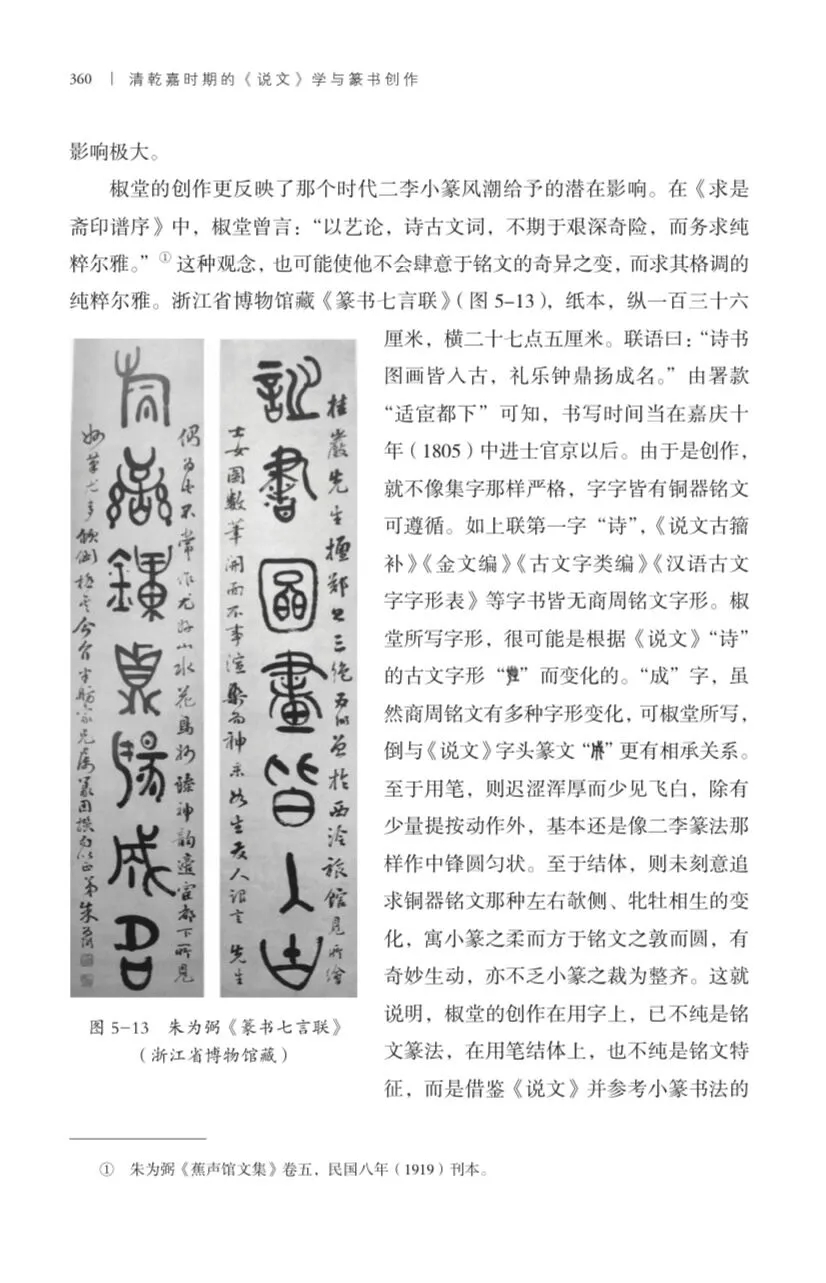 360 | 清乾嘉时期的《说文》学与篆书创作
影响极大。
椒堂的创作更反映了那个时代二李小篆风潮给予的潜在影响。在《求是
斋印谱序》中，椒堂曾言：“以艺论，诗古文词，不期于艰深奇险，而务求纯
粹尔雅。”①这种观念，也可能使他不会肆意于铭文的奇异之变，而求其格调的
纯粹尔雅。浙江省博物馆藏《篆书七言联》（图 5-13），纸本，纵一百三十六
厘米，横二十七点五厘米。联语曰：“诗书
图画皆入古，礼乐钟鼎扬成名。”由署款
“适宦都下”可知，书写时间当在嘉庆十
年（1805）中进士官京以后。由于是创作，
就不像集字那样严格，字字皆有铜器铭文
可遵循。如上联第一字“诗”，《说文古籀
补》《金文编》《古文字类编》《汉语古文
字字形表》等字书皆无商周铭文字形。椒
堂所写字形，很可能是根据《说文》“诗”
的古文字形“”而变化的。“成”字，虽
然商周铭文有多种字形变化，可椒堂所写，
倒与《说文》字头篆文“”更有相承关系。
至于用笔，则迟涩浑厚而少见飞白，除有
少量提按动作外，基本还是像二李篆法那
样作中锋圆匀状。至于结体，则未刻意追
求铜器铭文那种左右欹侧、牝牡相生的变
化，寓小篆之柔而方于铭文之敦而圆，有
奇妙生动，亦不乏小篆之裁为整齐。这就
说明，椒堂的创作在用字上，已不纯是铭
文篆法，在用笔结体上，也不纯是铭文特
征，而是借鉴《说文》并参考小篆书法的
桂巖先生擅鄭三絕於西泠旅館見所繪
詩書圖畫皆入古
士女圖數筆開而不事渲染而神采如生友人先生
偶不常作尤好山水花鳥臻神韵適宦都下所見
禮樂鐘鼎揚成名
图 5-13　朱为弼《篆书七言联》
（浙江省博物馆藏）
①　朱为弼《蕉声馆文集》卷五，民国八年（1919）刊本。